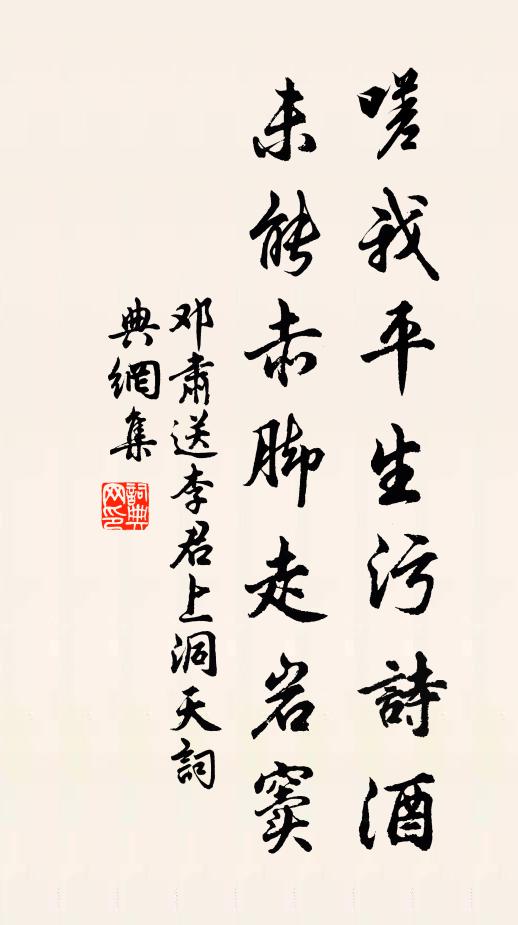 嗟我平生污詩酒
未能赤脚走岩竇
邓肅送李君上洞天詞
典網集
詞典
网印